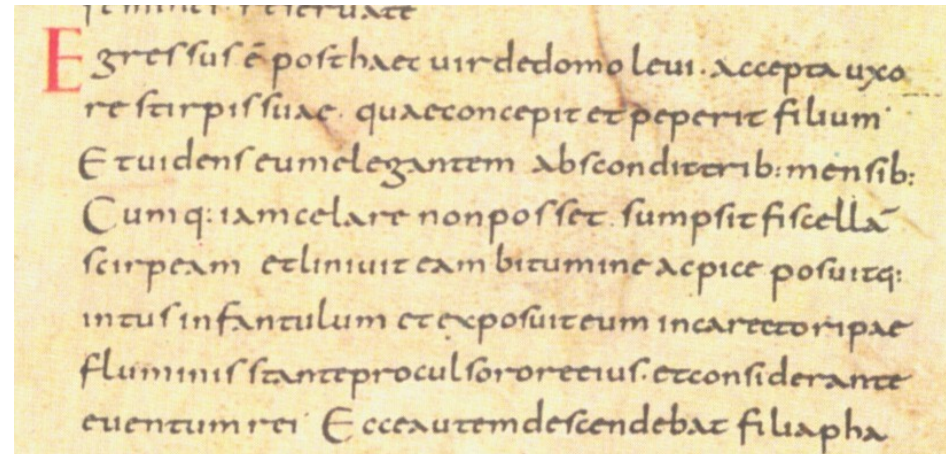 feminei reservate
Egressus ē posthaec vir de domo levi. accepta uxo
re stirpis suae. quae concepit et peperit filium.
Et videns eum elegantem abscondit trib: mensib:
Cumq: iam celare non posset. sumpsit fiscellā
scirpeam et linivit eam bitumine ac pice posuitq:
intus infantulum et exposuit eum in carecto ripae
fluminis stante procul sorore eius. et considerante
eventum rei. Ecce autem descendebat filia pha